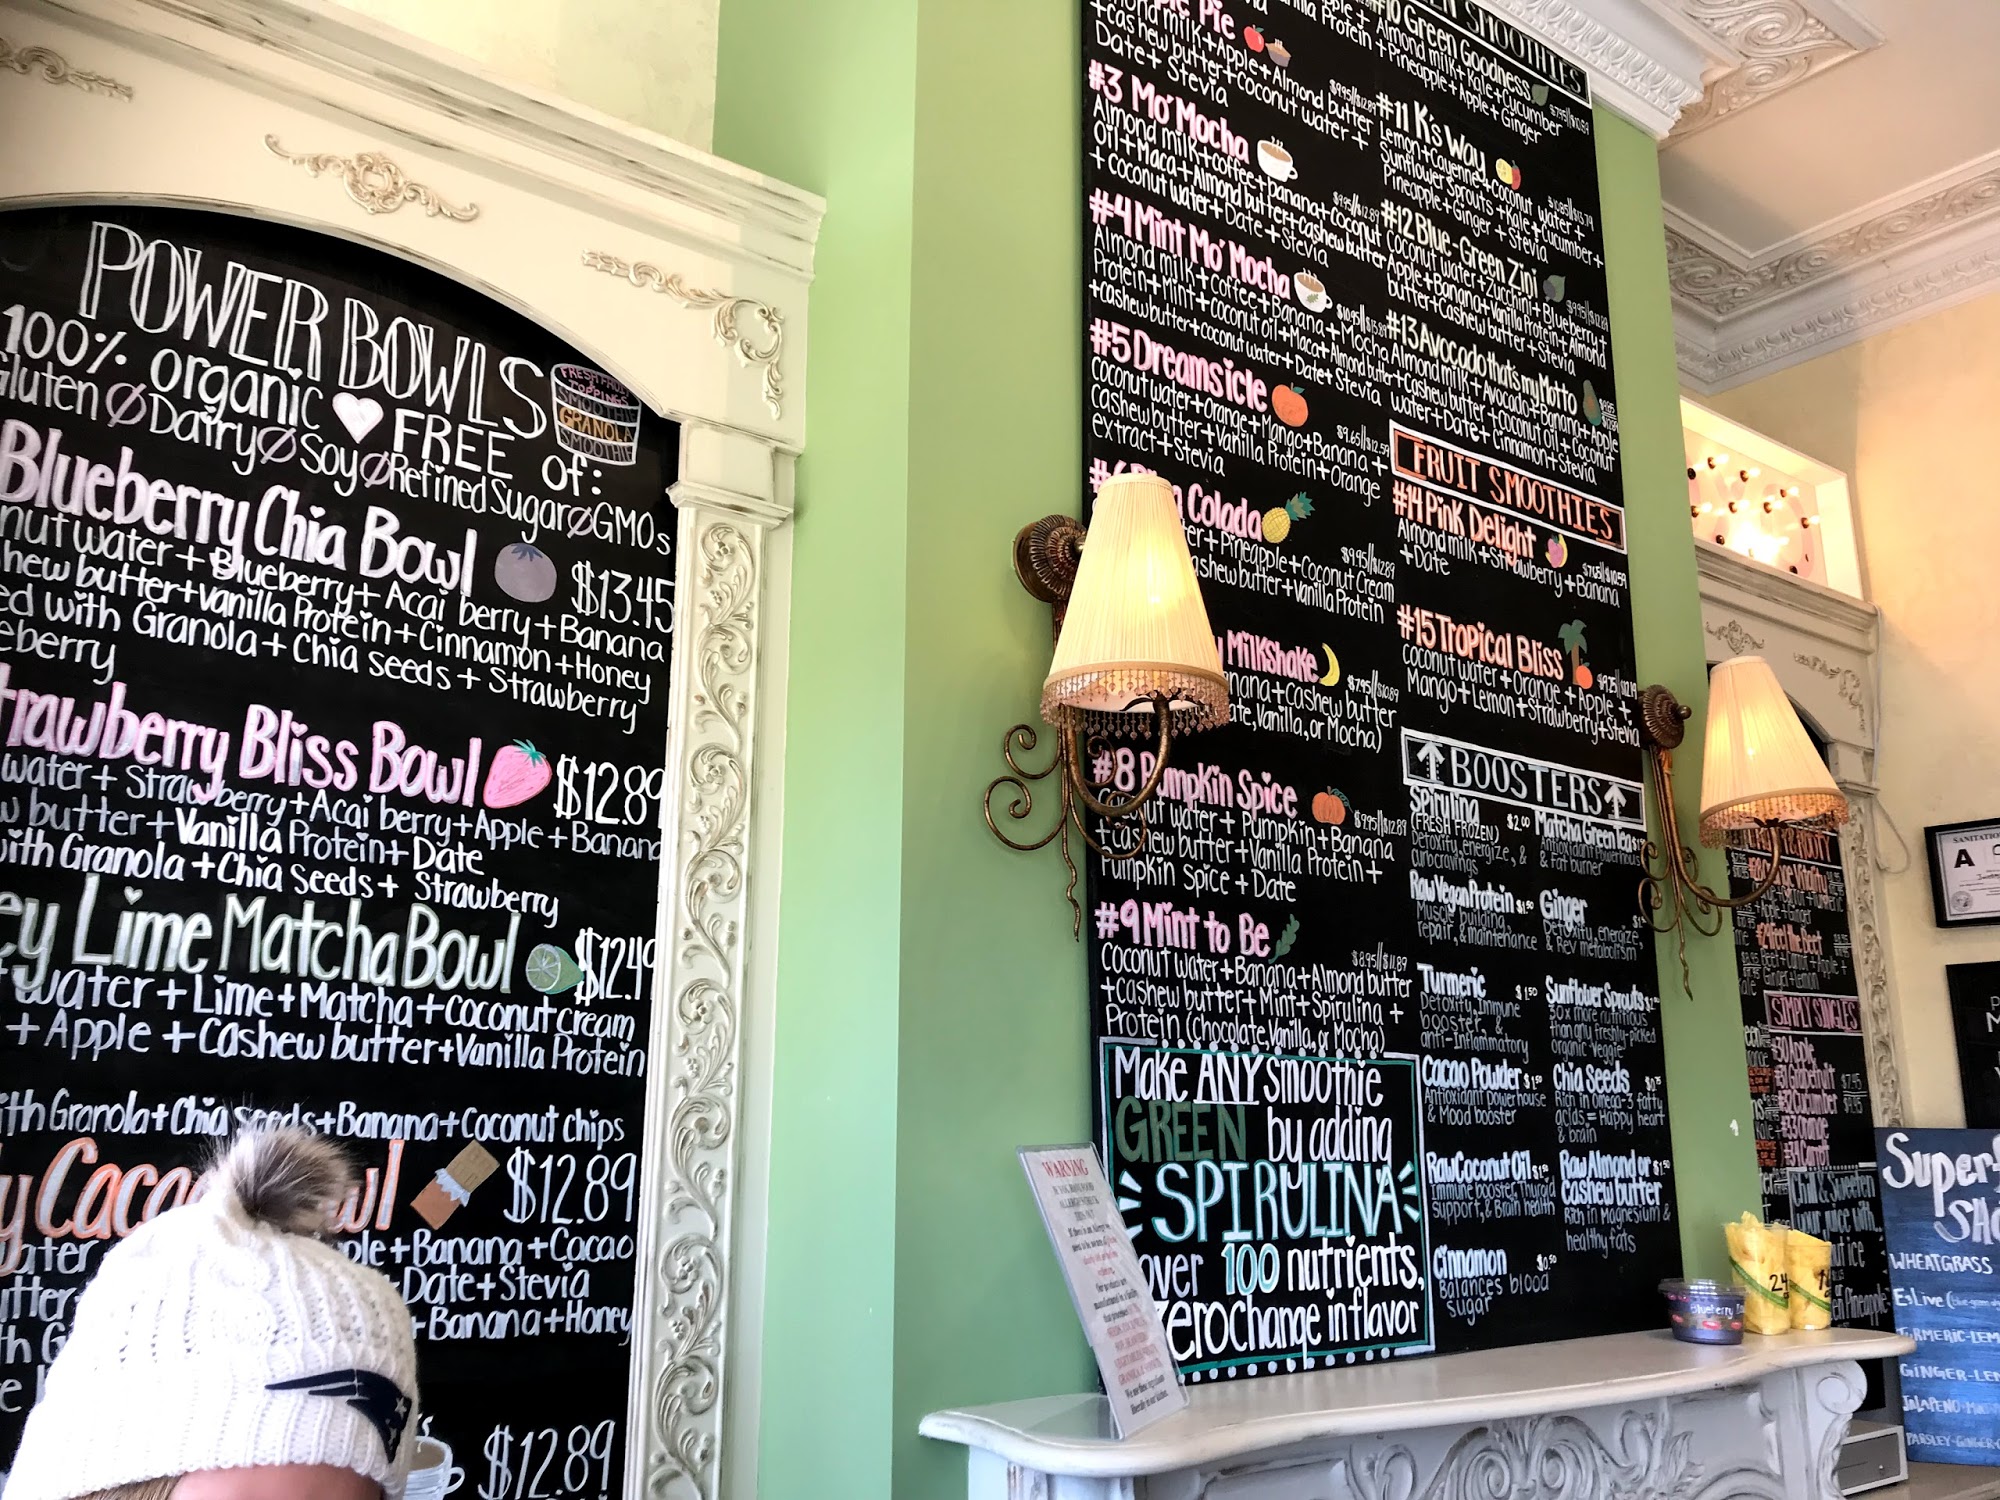 POWER BOWLS
100% organic FREE of:
Gluten Dairy Soy Refined Sugar GMOs
FRESH FRUIT
TOPPINGS
SMOOTHIE
GRANOLA
SMOOTHIE
Blueberry Chia Bowl $13.45
nut water + Blueberry + Acai berry + Banana
hew butter + vanilla Protein + Cinnamon + Honey
ed with Granola + Chia seeds + Strawberry
eberry
trawberry Bliss Bowl $12.89
water + Strawberry + Acai berry + Apple + Banana
w butter + Vanilla Protein + Date
with Granola + Chia Seeds + Strawberry
ey Lime Matcha Bowl $12.49
water + Lime + Matcha + Coconut cream
+ Apple + Cashew butter + Vanilla Protein
ith Granola + Chia seeds + Banana + Coconut chips
y Caca wl $12.89
ater ple + Banana + Cacao
utter Date + Stevia
h G + Banana + Honey
$12.89
le Pie
Almond milk + Apple + Almond butter
+ cashew butter + coconut water +
Date + Stevia
#3 Mo' Mocha $9.95//$12.89
Almond milk + coffee + banana + coconut
Oil + Maca + Almond butter + cashew butter
+ coconut water + Date + Stevia
#4 Mint Mo' Mocha
Almond milk + coffee + Banana + Mocha
Protein + Mint + coconut oil + Maca + Almond butter
+ cashew butter + coconut water + Date + Stevia
#5 Dreamsicle $9.65//$12.59
Coconut water + Orange + Mango + Banana +
Cashew butter + Vanilla Protein + Orange
extract + Stevia
Colada $9.95//$12.89
ter + Pineapple + Coconut Cream
ashew butter + Vanilla Protein
Milkshake $7.95//$10.89
anana + Cashew butter
ate, Vanilla, or Mocha)
#8 Pumpkin Spice $9.95//$12.89
Coconut water + Pumpkin + Banana
+ cashew butter + Vanilla Protein +
Pumpkin Spice + Date
#9 Mint to Be $8.95//$11.89
Coconut water + Banana + Almond butter
+ cashew butter + Mint + Spirulina +
Protein (chocolate, Vanilla, or Mocha)
Make ANY smoothie
GREEN by adding
SPIRULINA
over 100 nutrients,
zero change in flavor
SMOOTHIES
#10 Green Goodness
Almond milk + Kale + Cucumber
+ Pineapple + Apple + Ginger
#11 K's Way
Lemon + Cayenne + coconut water +
Sunflower Sprouts + Kale + Cucumber +
Pineapple + Ginger + Stevia
#12 Blue-Green Zini $9.95//$12.89
Coconut water + Zucchini + Blueberry +
Apple + Banana + Vanilla Protein + Almond
butter + Cashew butter + Stevia
#13 Avocado that's my Motto
Almond milk + Avocado + Banana + Apple
+ Cashew butter + coconut oil + Coconut
water + Date + Cinnamon + Stevia
FRUIT SMOOTHIES
#14 Pink Delight $7.65//$10.59
Almond milk + Strawberry + Banana
+ Date
#15 Tropical Bliss
Coconut water + Orange + Apple +
Mango + Lemon + Strawberry + Stevia
BOOSTERS
Spirulina $2.00
(FRESH FROZEN)
Detoxify, energize, &
curb cravings
Matcha Green Tea
Antioxidant Powerhouse
& Fat burner
Raw Vegan Protein $1.50
Muscle building,
repair, & maintenance
Ginger
Detoxify, energize,
& Rev metabolism
Turmeric $1.50
Detoxify, Immune
booster, &
anti-inflammatory
Sunflower Sprouts
30x more nutritious
than any freshly-picked
organic veggie
Cacao Powder $1.50
Antioxidant Powerhouse
& Mood booster
Chia Seeds $0.75
Rich in omega-3 fatty
acids = Happy heart
& brain
Raw Coconut Oil $1.50
Immune booster, Thyroid
support, & Brain health
Raw Almond or $1.50
Cashew butter
Rich in Magnesium &
healthy fats
Cinnamon $0.50
Balances blood
sugar
WARNING
SIMPLY SINGLES
#30 Apple
#31 Grapefruit $7.95
#32 Cucumber
#33 Orange
#34 Carrot
Chill & Sweeten
your juice with...
SANITATIO
A
Blueberry
24
Superf
SHO
WHEATGRASS
EsLive
TURMERIC-LEM
GINGER-LEM
JALAPENO
PARSLEY-GINGER